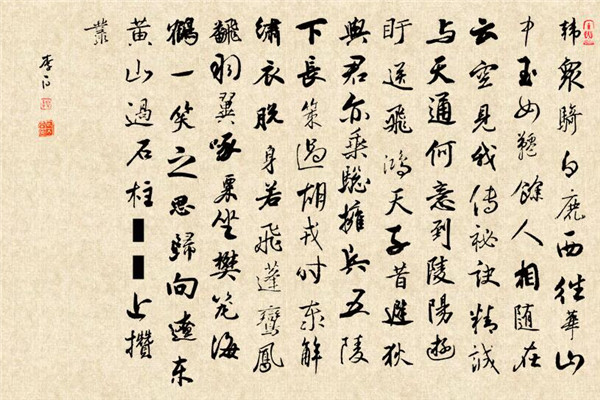 韓眾騎白鹿西往華山
中玉女韆餘人相随在
云空見我傳秘訣精誠
与天通何意到陵陽遊
盱送飛鴻天子昔避狄
與君亦乘驄擁兵五陵
下長策遏胡戎时泰解
繡衣脱身若飛蓬鸞鳳
翻羽翼啄粟坐樊笼海
鶴一笑之思歸向遼东
黄山過石柱上攢
叢
李白